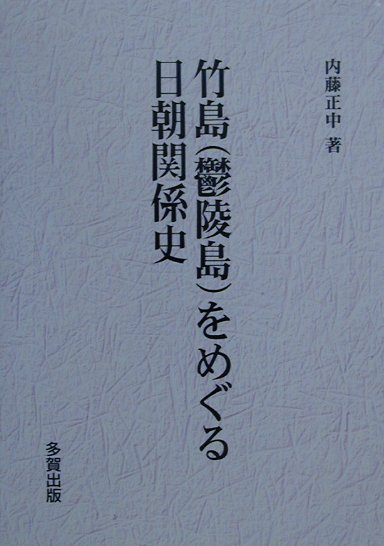 内藤正中 著
竹島(鬱陵島)をめぐる
日朝関係史
多賀出版